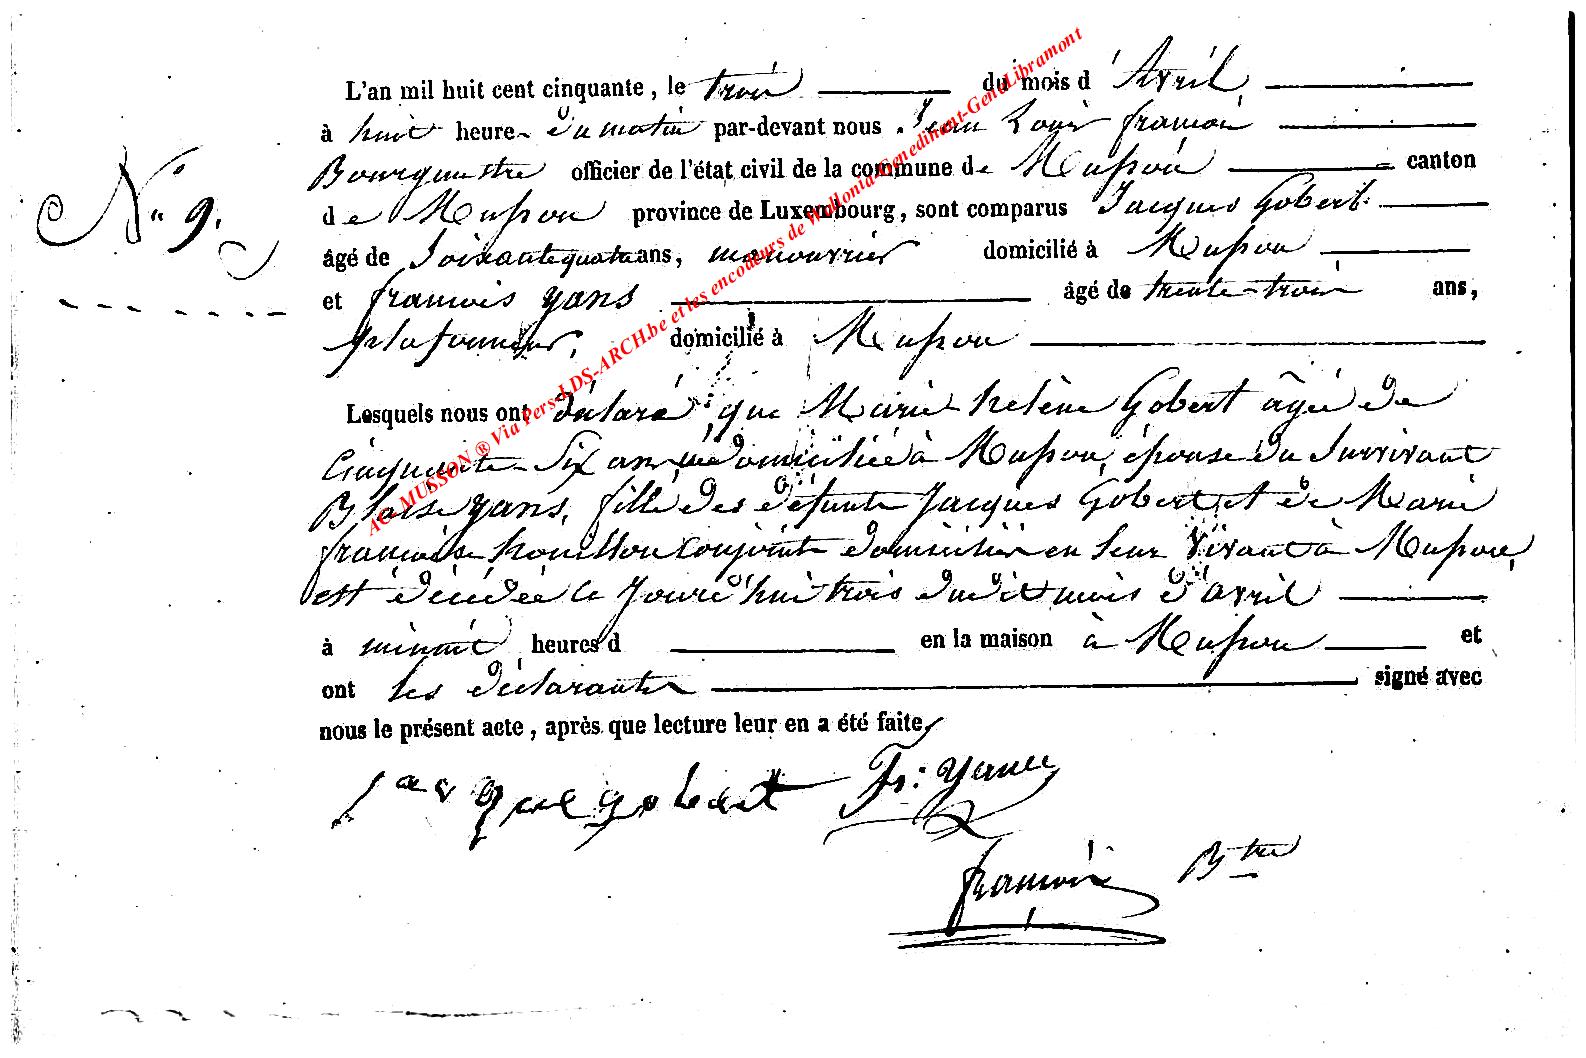 L'an mil huit cent cinquante, le trois du mois d'Avril,
à huit heure du matin par-devant nous Jean Louis françois
N° 9.
Bourgmestre officier de l'état civil de la commune de Musson canton
de Musson province de Luxembourg, sont comparus Jacques Gobert
âgé de Soixante quatre ans, manouvrier domicilié à Musson
et francois yans âgé de trente-trois ans,
plafonneur, domicilié à Musson
Lesquels nous ont déclaré, que Marie hélène Gobert âgée de
Cinquante Six ans, domiciliée à Musson, épouse du Survivant
Blaise yans, fille des défunts Jacques Gobert et de Marie
francoise conjoints domiciliés en leur vivant à Musson,
est décédée ce Jourd'hui trois dudit mois d'avril
à minuit heures d en la maison à Musson et
ont les déclarants signé avec
nous le présent acte, après que lecture leur en a été faite,
Jacque gobert Fr: yans
françois Btre
AC MUSSON ® Via Pers-LDS-ARCH.be et les encodeurs de Wallonia-Genedinant-GeneLibramont